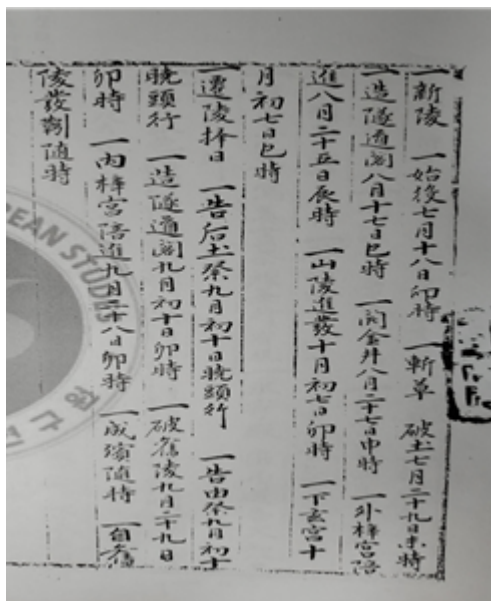 一新陵 一始役七月十八日卯時 一斬草 破土七月二十九日未時
一造隧道閣八月十七日巳時 一開金井八月二十七日申時 一外梓宮陪
進八月二十五日辰時 一山陵進發十月初七日卯時 一下玄宮十
月初七日巳時
一遷陵擇日 一告后土祭九月初十日曉頭行 一告由祭九月初十
曉頭行 一造隧道閣九月初十日卯時 一破舊陵九月二十九日
卯時 一內梓宮陪進九月二十八日卯時 一成殯隨時 一自舊
陵發靷隨時
REAN STUDIES